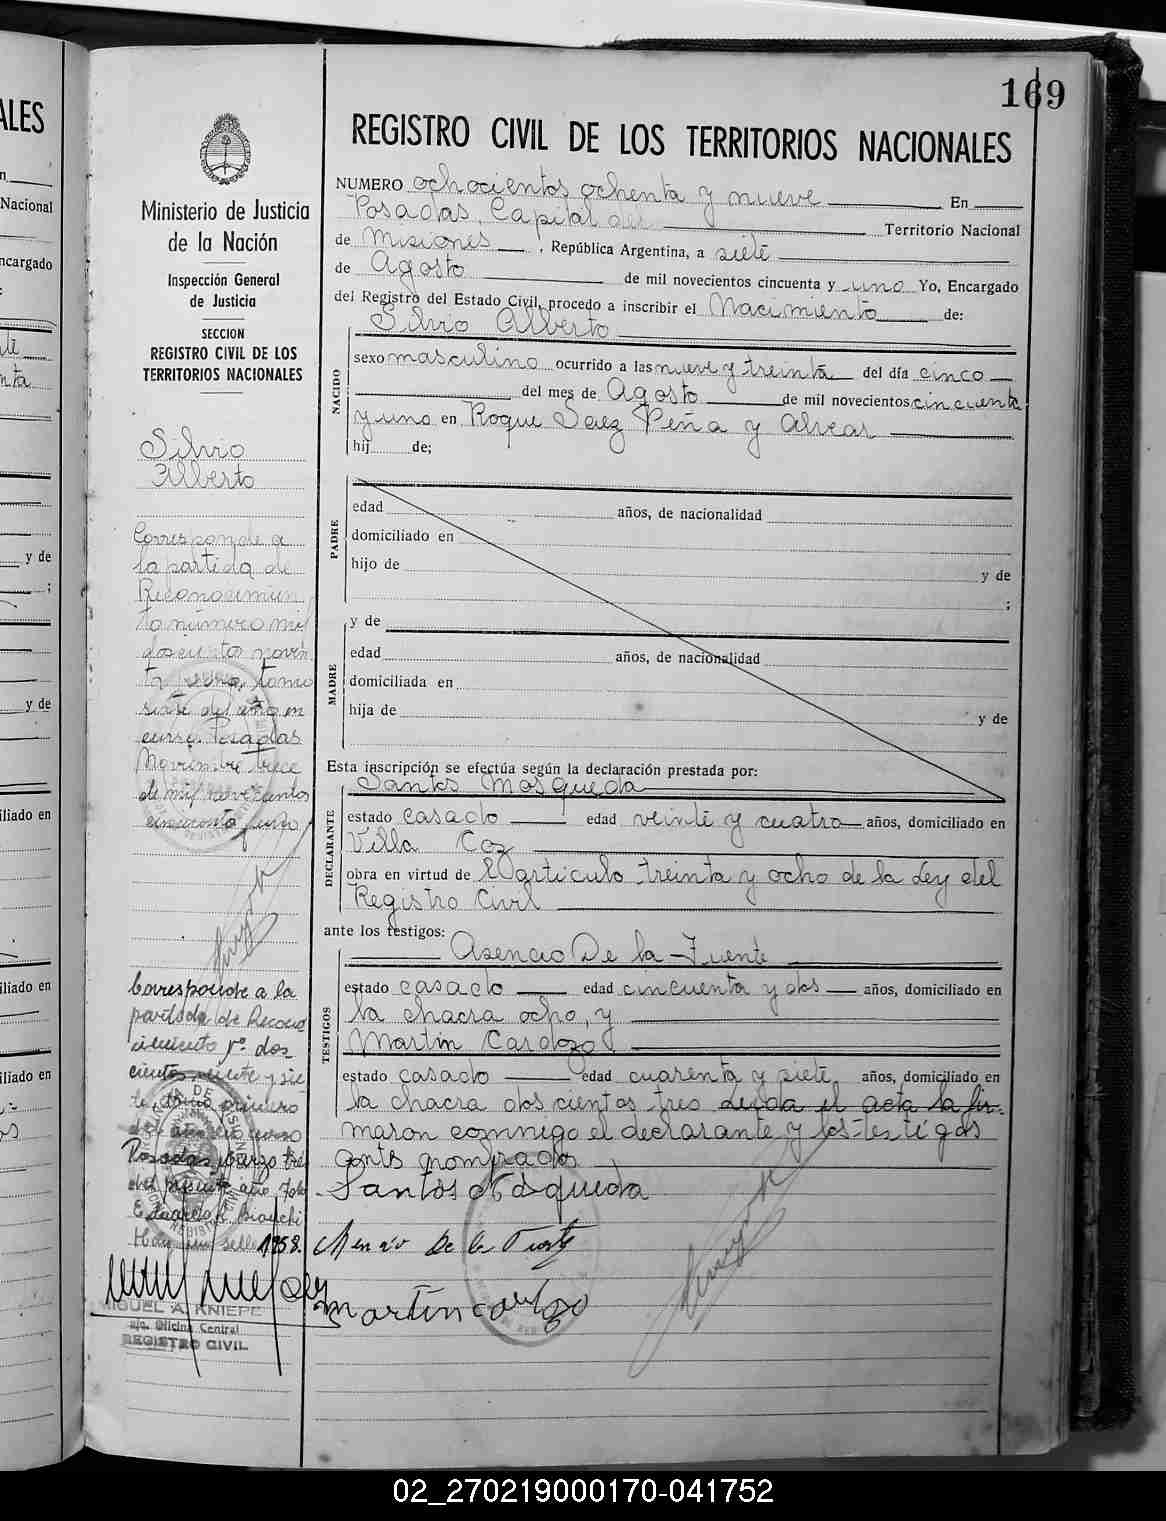 ALES
Nacional
ncargado
y de
y de
iliado en
iliado en
iliado en
169
REGISTRO CIVIL DE LOS TERRITORIOS NACIONALES
Ministerio de Justicia
de la Nación
Inspección General
de Justicia
SECCION
REGISTRO CIVIL DE LOS
TERRITORIOS NACIONALES
Silvio
Alberto
Corresponde a
la partida de
Reconocimien
to número mil
doscientos noven
ta tomo
siete del año en
curso Posadas
Noviembre trece
de mil novecientos
cincuenta y uno
Corresponde a la
partida de Recono
cimiento nº dos
cientos veinte y sie
te tomo primero
del año en curso
Posadas, Marzo tres
del presente año. Fdo
Eduardo Bianchi
Hay un sello 1958.
MIGUEL A. KNIEPE
a/c. Oficina Central
REGISTRO CIVIL
NUMERO ochocientos ochenta y nueve En
Posadas, Capital del Territorio Nacional
de Misiones, República Argentina, a siete
de Agosto de mil novecientos cincuenta y uno Yo, Encargado
del Registro del Estado Civil, procedo a inscribir el Nacimiento de:
Silvio Alberto
NACIDO
sexo masculino ocurrido a las nueve y treinta del día cinco
del mes de Agosto de mil novecientos cincuenta
y uno en Roque Saez Peña y Alvear
hij de;
PADRE
edad años, de nacionalidad
domiciliado en
hijo de y de
;
MADRE
y de
edad años, de nacionalidad
domiciliada en
hija de y de
Esta inscripción se efectúa según la declaración prestada por:
Santos Mosqueda
DECLARANTE
estado casado edad veinte y cuatro años, domiciliado en
Villa Coz
obra en virtud de El artículo treinta y ocho de la Ley del
Registro Civil
ante los testigos:
Asencio De la Fuente
TESTIGOS
estado casado edad cincuenta y dos años, domiciliado en
la chacra ocho, y
Martín Cardozo
estado casado edad cuarenta y siete años, domiciliado en
la chacra doscientos tres Leída el acta la fir-
maron conmigo el declarante y los testigos
ants nombrados
Santos Mosqueda
Asencio De la Fuente
Martin Cardozo
02_270219000170-041752